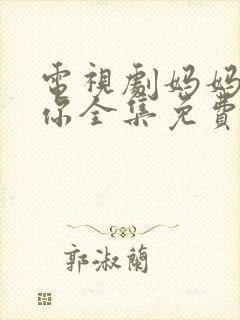 電視劇妈妈
你全集免費
郭淑蘭